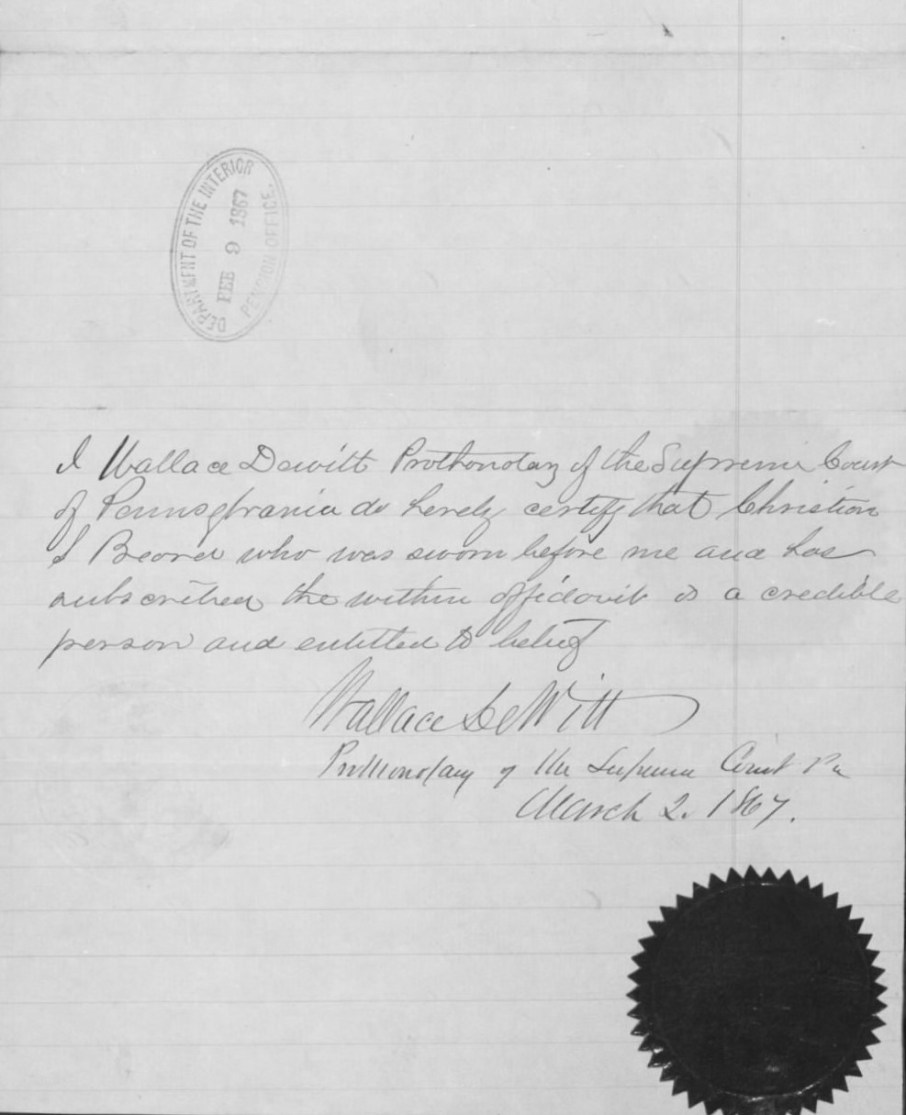 DEPARTMENT OF THE INTERIOR
FEB 9 1867
PENSION OFFICE.
I Wallace Dewitt Prothonotary of the Supreme Court
of Pennsylvania do hereby certify that Christian
who was sworn before me and has
subscribed the within affidavit is a credible
person and entitled to belief
Wallace DeWitt
Prothonotary of the Supreme Court Pa
March 2. 1867.